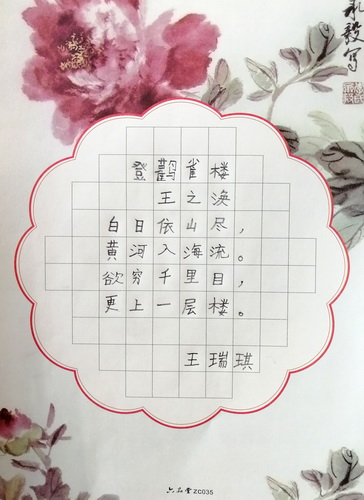 登觀雀楼
王之涣
白日依山尽，
黄河入海流。
欲穷千里目，
更上一层楼。
王瑞琪
六品堂 ZC035